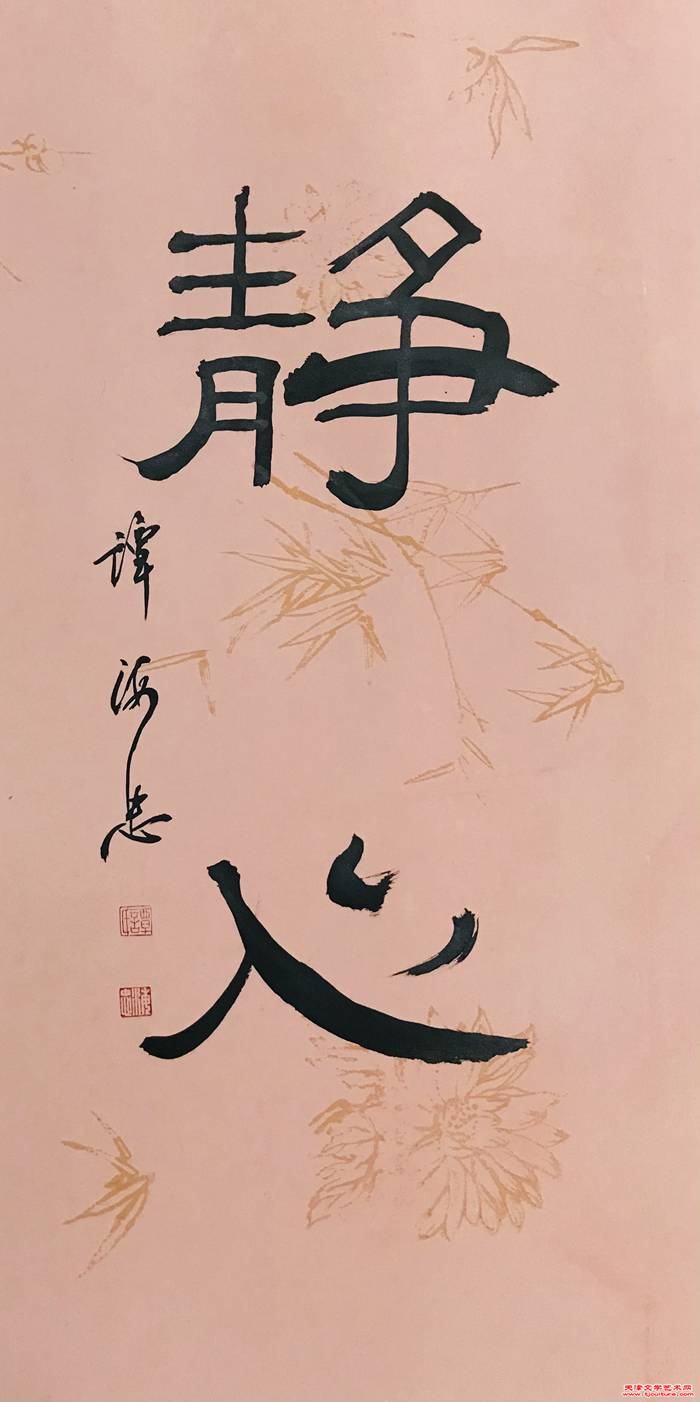 靜心
谭海忠
天津文学艺术网
www.tjculture.com